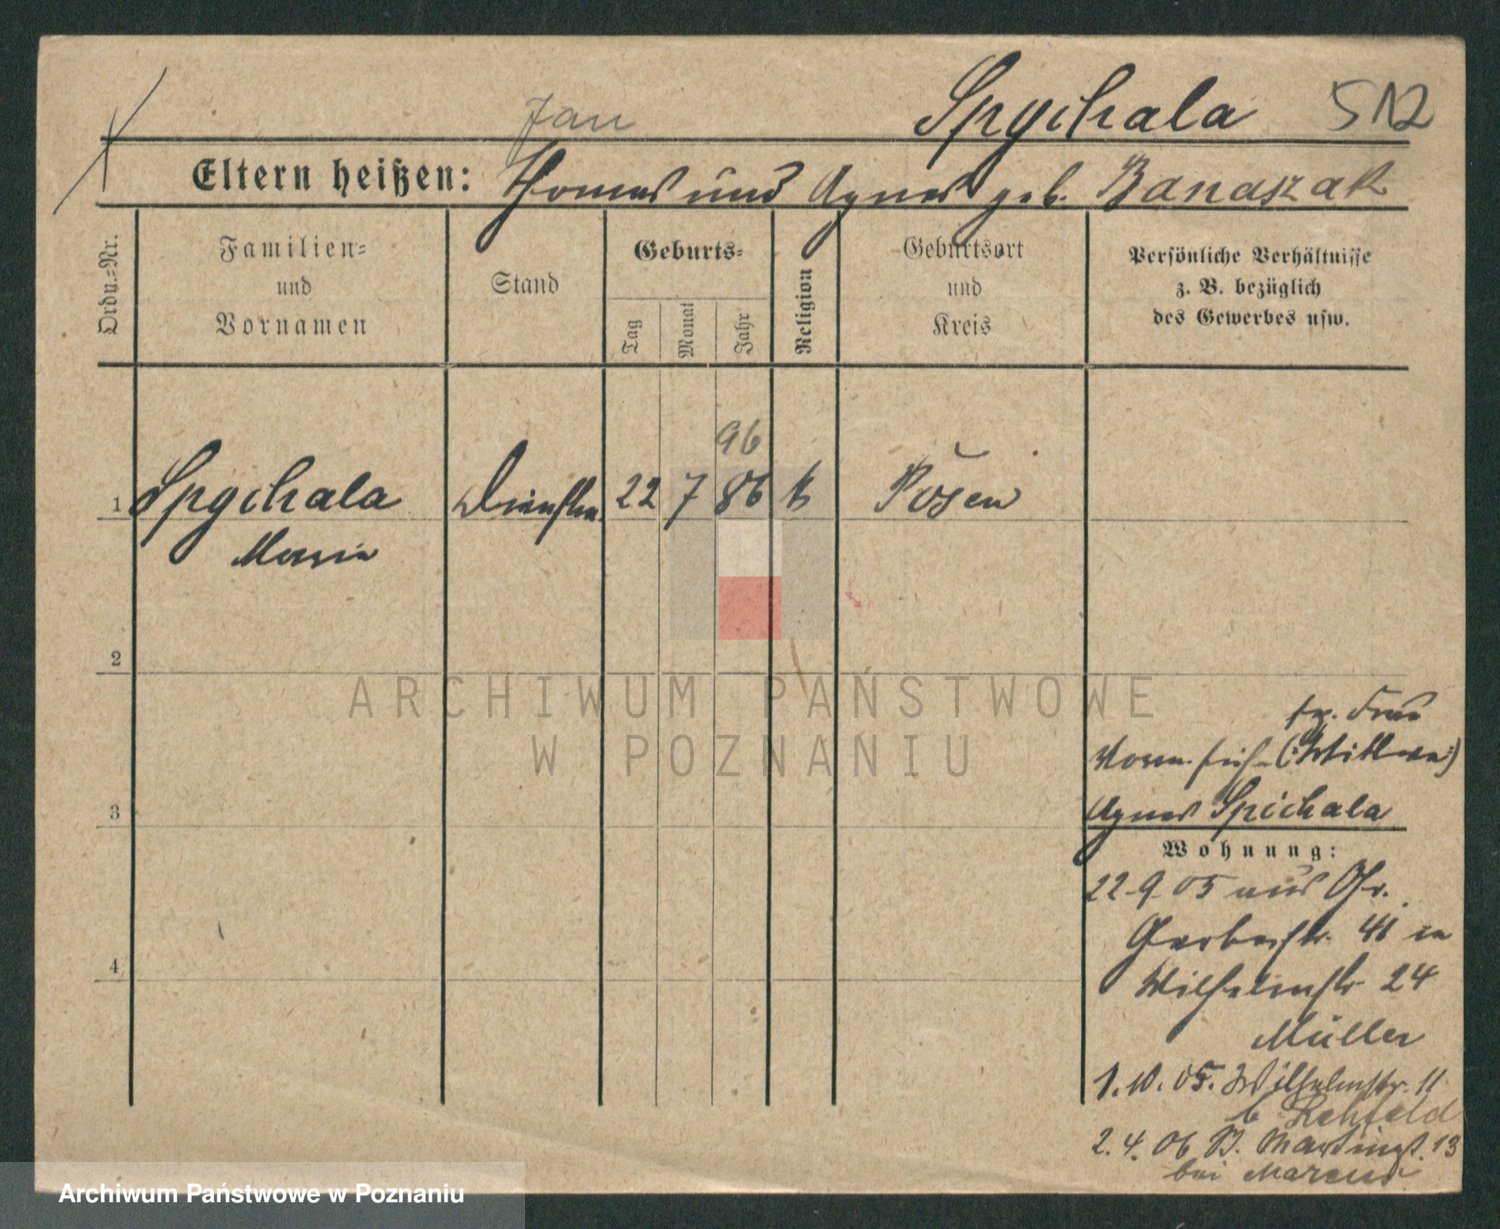 Jan
Spychala 512
Eltern heißen: Thomas und Agnes geb. Banaszak
Ordn.=Nr.
Familien=
und
Vornamen
Stand
Geburts=
Tag
Monat
Jahr
Religion
Geburtsort
und
Kreis
Persönliche Verhältnisse
z. B. bezüglich
des Gewerbes usw.
96
1 Spychala 22 7 86 k Posen
Marie
2
Frau
Agnes Spichala
3
Wohnung:
22.9.05 aus Gr.
Gerberstr. 41 in
4
Wilhelmstr 24
Müller
1.10.05. Wilhelmstr. 11
b Rehfeld
2.4.06 St. Martinst. 13
bei Marcus
ARCHIWUM PAŃSTWOWE
W POZNANIU
Archiwum Państwowe w Poznaniu